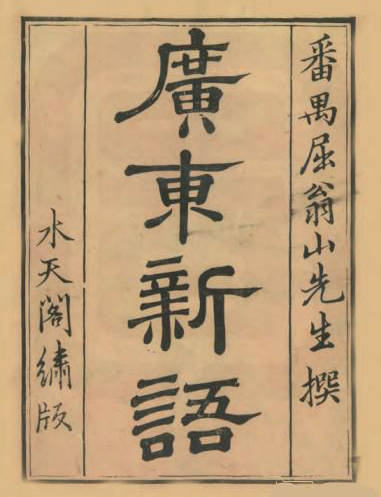 番禺屈翁山先生撰
廣東新語
水天閣繡版